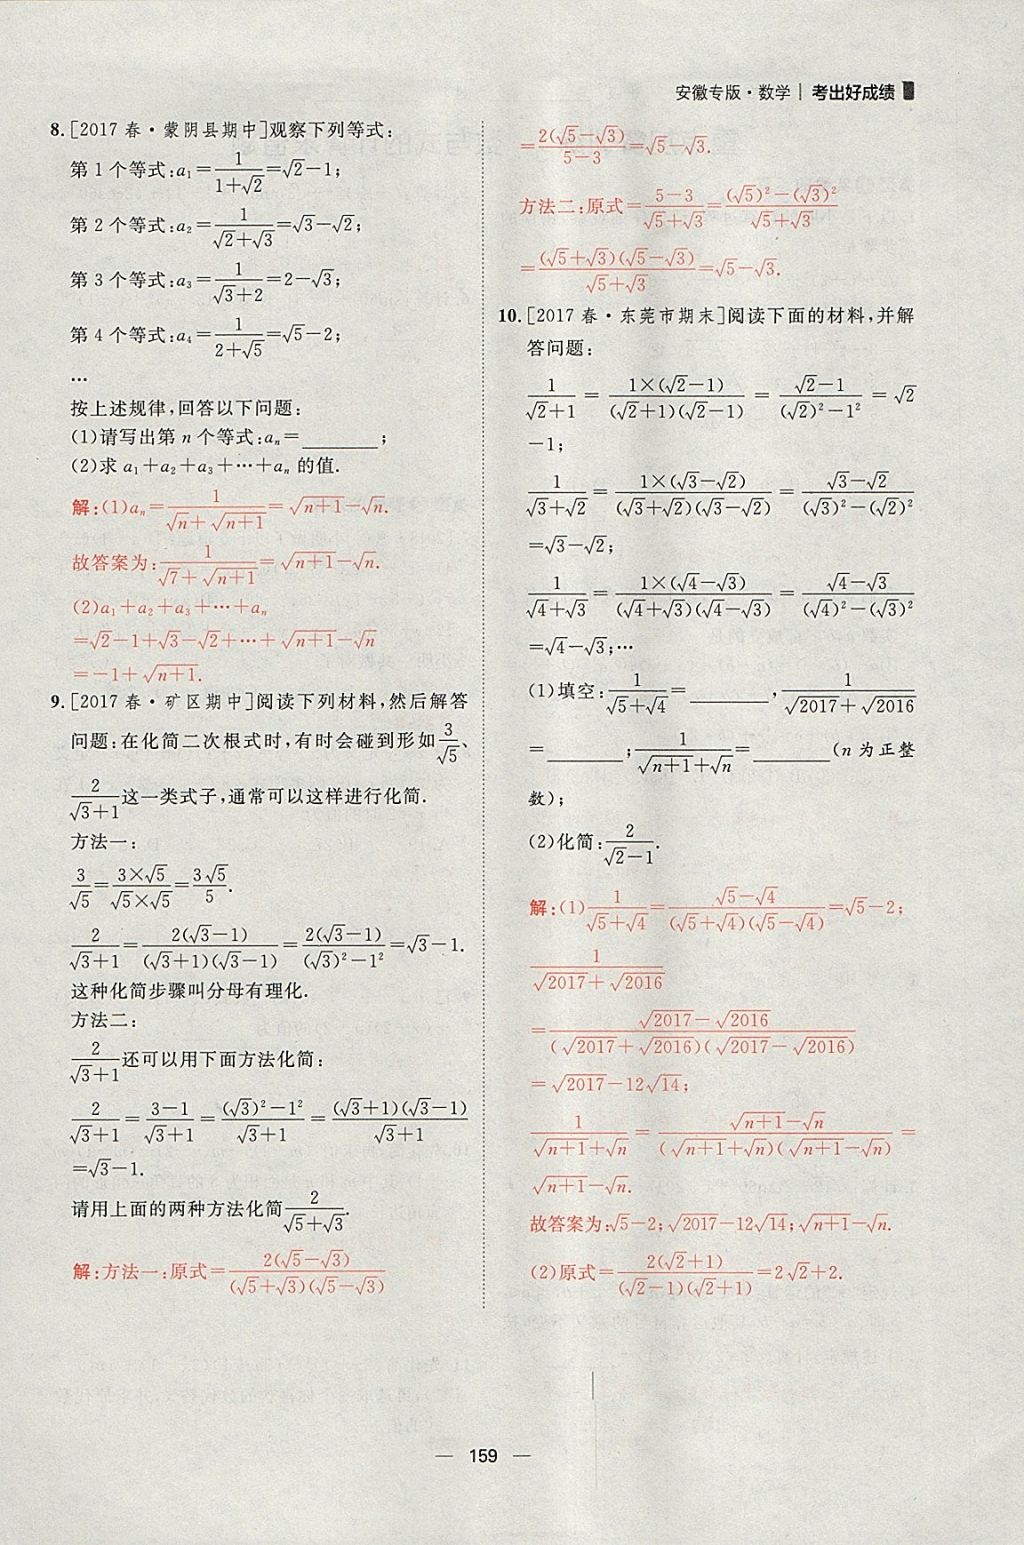 安徽专版·数学 | 考出好成绩
8. [2017 春·蒙阴县期中]观察下列等式:
第 1 个等式:a₁=1/(1+√2)=√2-1;
第 2 个等式:a₂=1/(√2+√3)=√3-√2;
第 3 个等式:a₃=1/(√3+2)=2-√3;
第 4 个等式:a₄=1/(2+√5)=√5-2;
…
按上述规律,回答以下问题:
(1)请写出第 n 个等式:aₙ=________;
(2)求 a₁+a₂+a₃+…+aₙ 的值.
解:(1)aₙ=1/(√n+√(n+1))=√(n+1)-√n.
故答案为:1/(√7+√(n+1))=√(n+1)-√n.
(2)a₁+a₂+a₃+…+aₙ
=√2-1+√3-√2+…+√(n+1)-√n
=-1+√(n+1).
9. [2017 春·矿区期中]阅读下列材料,然后解答
问题:在化简二次根式时,有时会碰到形如3/√5、
2/(√3+1)这一类式子,通常可以这样进行化简.
方法一:
3/√5=(3×√5)/(√5×√5)=3√5/5.
2/(√3+1)=2(√3-1)/((√3+1)(√3-1))=2(√3-1)/((√3)²-1²)=√3-1.
这种化简步骤叫分母有理化.
方法二:
2/(√3+1)还可以用下面方法化简:
2/(√3+1)=(3-1)/(√3+1)=((√3)²-1²)/(√3+1)=((√3+1)(√3-1))/(√3+1)
=√3-1.
请用上面的两种方法化简2/(√5+√3).
解:方法一:原式=2(√5-√3)/((√5+√3)(√5-√3))
=2(√5-√3)/(5-3)=√5-√3.
方法二:原式=(5-3)/(√5+√3)=((√5)²-(√3)²)/(√5+√3)
=((√5+√3)(√5-√3))/(√5+√3)=√5-√3.
10. [2017 春·东莞市期末]阅读下面的材料,并解
答问题:
1/(√2+1)=1×(√2-1)/((√2+1)(√2-1))=(√2-1)/((√2)²-1²)=√2
-1;
1/(√3+√2)=1×(√3-√2)/((√3+√2)(√3-√2))=(√3-√2)/((√3)²-(√2)²)
=√3-√2;
1/(√4+√3)=1×(√4-√3)/((√4+√3)(√4-√3))=(√4-√3)/((√4)²-(√3)²
=√4-√3;…
(1)填空:1/(√5+√4)=________,1/(√2017+√2016)
=________;1/(√(n+1)+√n)=________(n 为正整
数);
(2)化简:2/(√2-1).
解:(1)1/(√5+√4)=(√5-√4)/((√5+√4)(√5-√4))=√5-2;
1/(√2017+√2016)
=(√2017-√2016)/((√2017+√2016)(√2017-√2016))
=√2017-12√14;
1/(√(n+1)+√n)=(√(n+1)-√n)/((√(n+1)+√n)(√(n+1)-√n))=
√(n+1)-√n.
故答案为:√5-2;√2017-12√14;√(n+1)-√n.
(2)原式=2(√2+1)/((√2-1)(√2+1))=2√2+2.
— 159 —